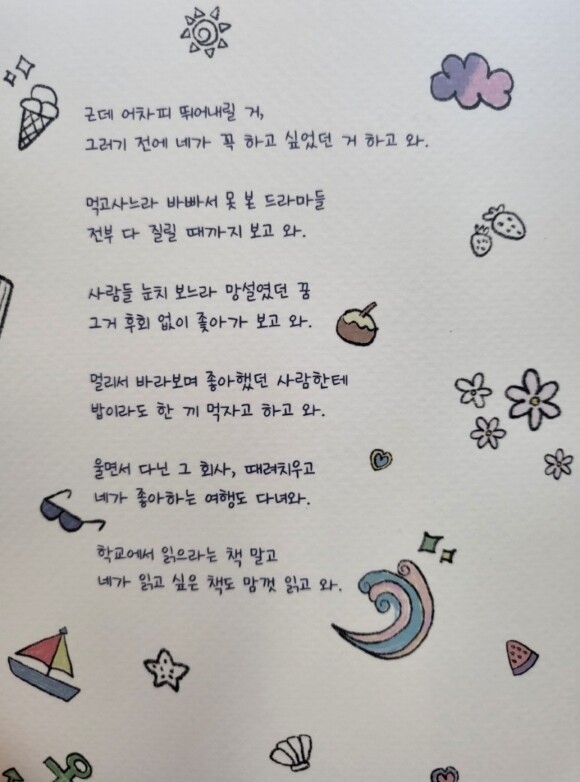 근데 어차피 뛰어내릴 거,
그러기 전에 네가 꼭 하고 싶었던 거 하고 와.
먹고사느라 바빠서 못 본 드라마들
전부 다 질릴 때까지 보고 와.
사람들 눈치 보느라 망설였던 꿈
그거 후회 없이 좇아가 보고 와.
멀리서 바라보며 좋아했던 사람한테
밥이라도 한 끼 먹자고 하고 와.
울면서 다닌 그 회사, 때려치우고
네가 좋아하는 여행도 다녀와.
학교에서 읽으라는 책 말고
네가 읽고 싶은 책도 맘껏 읽고 와.